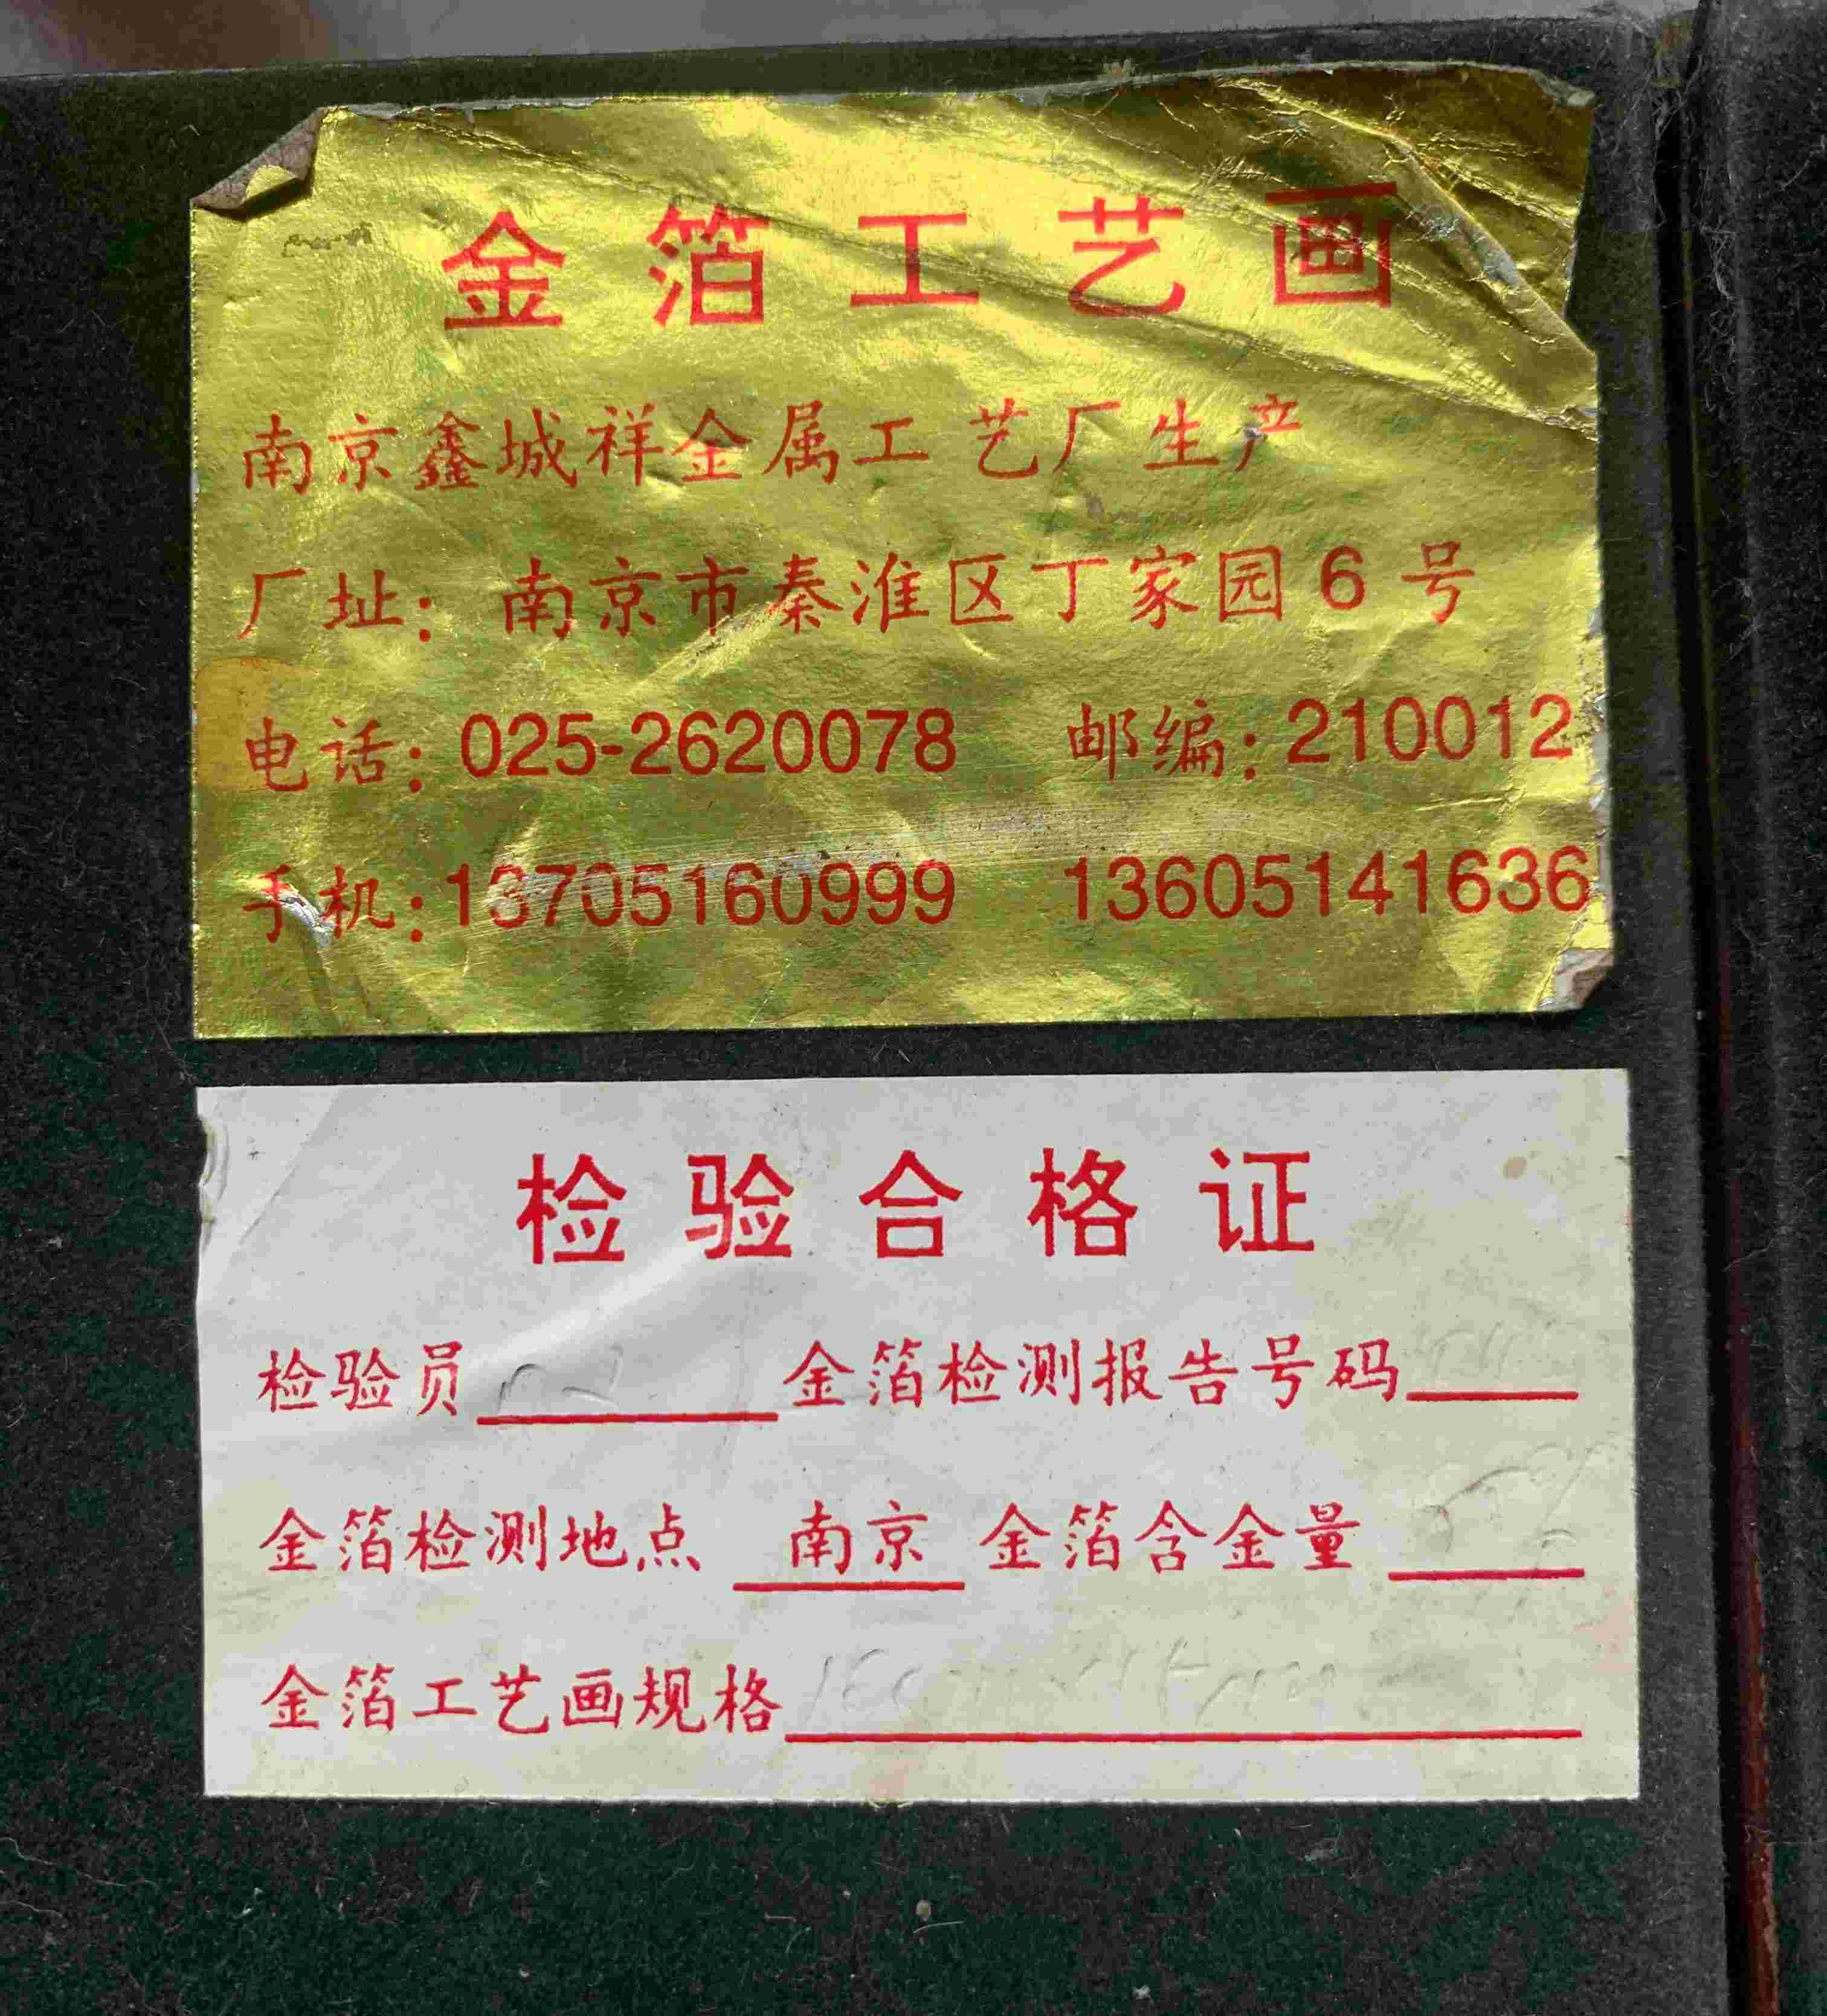 金箔工艺画
南京鑫城祥金属工艺厂生产
厂址：南京市秦淮区丁家园6号
电话：025-2620078 邮编：210012
手机：13705160999 13605141636
检验合格证
检验员 金箔检测报告号码
金箔检测地点 南京 金箔含金量
金箔工艺画规格